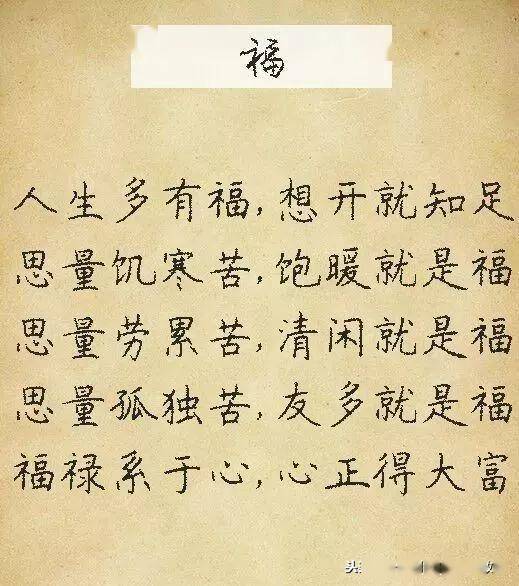 福
人生多有福，想开就知足
思量饥寒苦，饱暖就是福
思量劳累苦，清闲就是福
思量孤独苦，友多就是福
福禄系于心，心正得大富
头